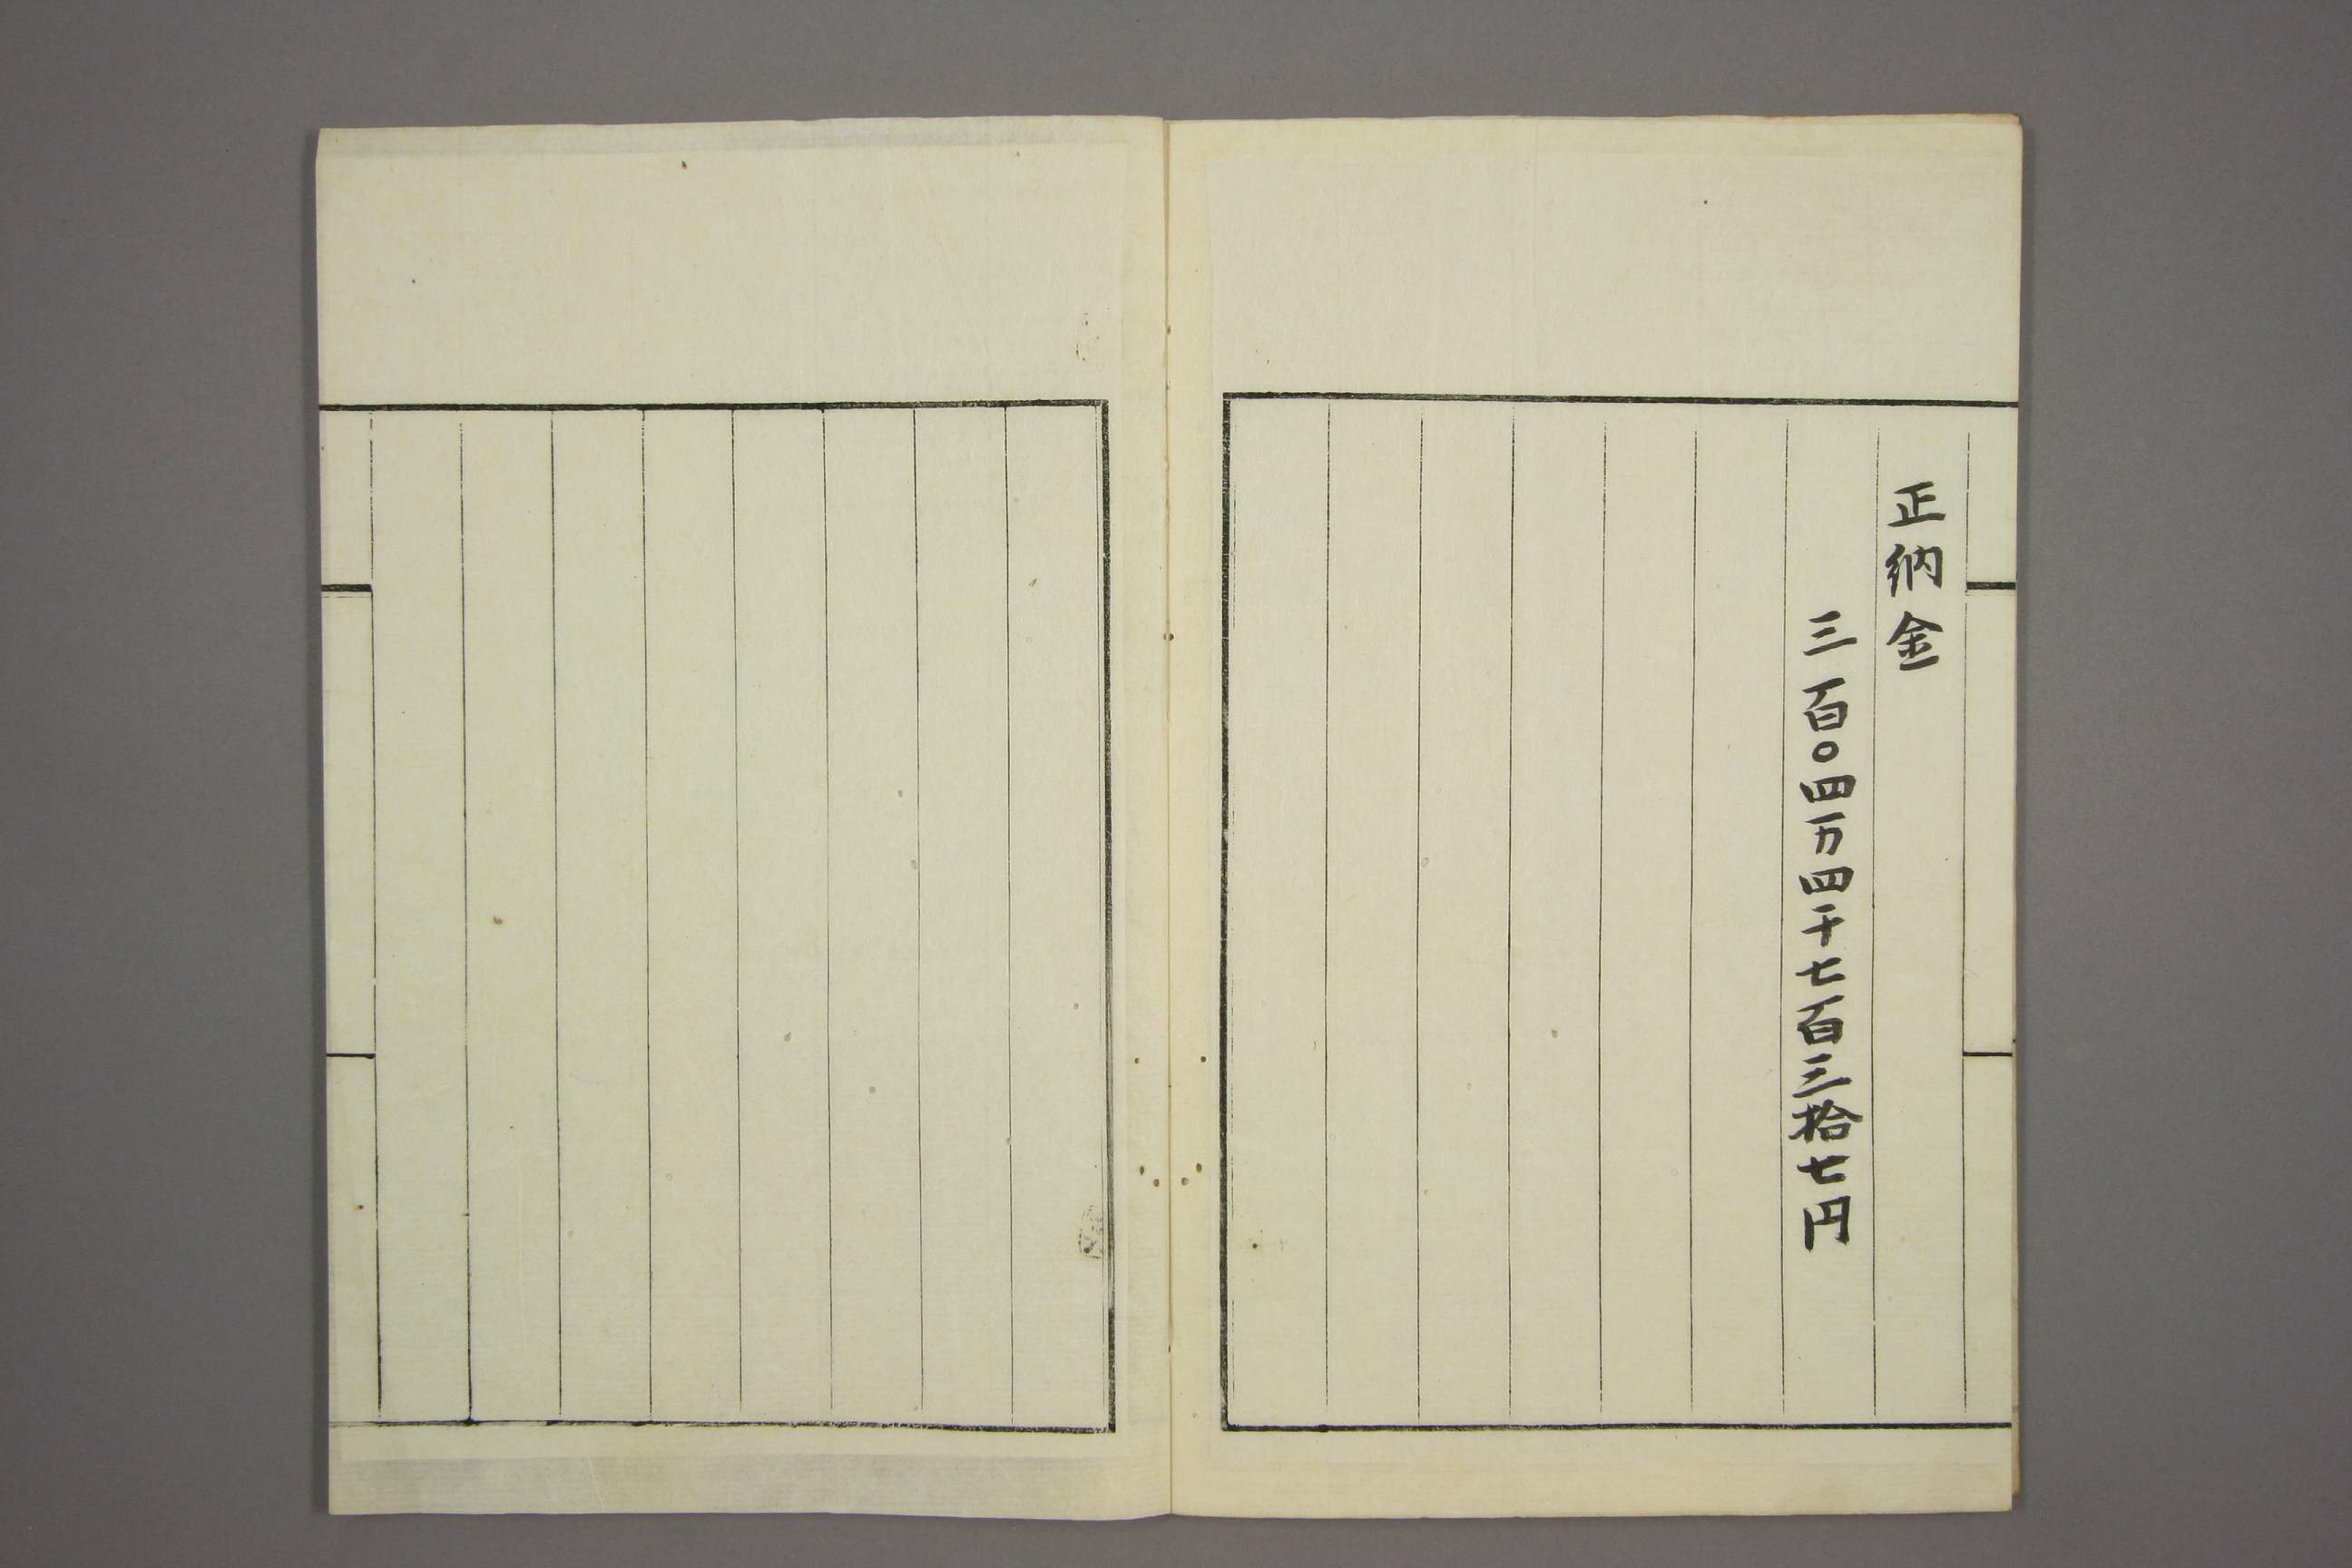 正納金
三百〇四万四千七百三拾七円